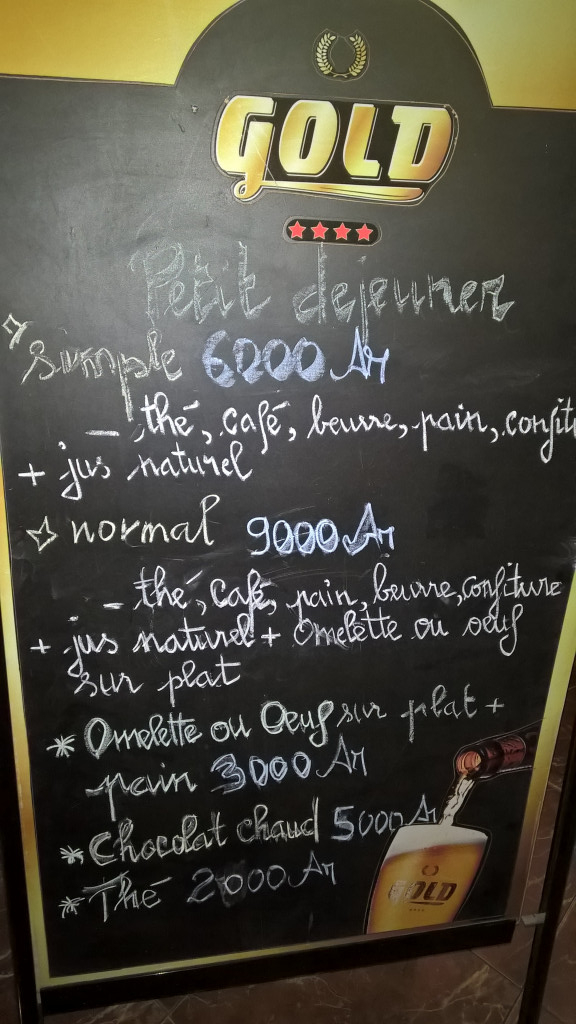 GOLD
Petit dejeuner
simple 6200 Ar
- thé, café, beurre, pain, confit
+ jus naturel
normal 9000 Ar
- thé, café, pain, beurre, confiture
+ jus naturel + Omelette ou oeuf
sur plat
* Omelette ou Oeuf sur plat +
pain 3000 Ar
* Chocolat chaud 5000 Ar
* Thé 2000 Ar
GOLD